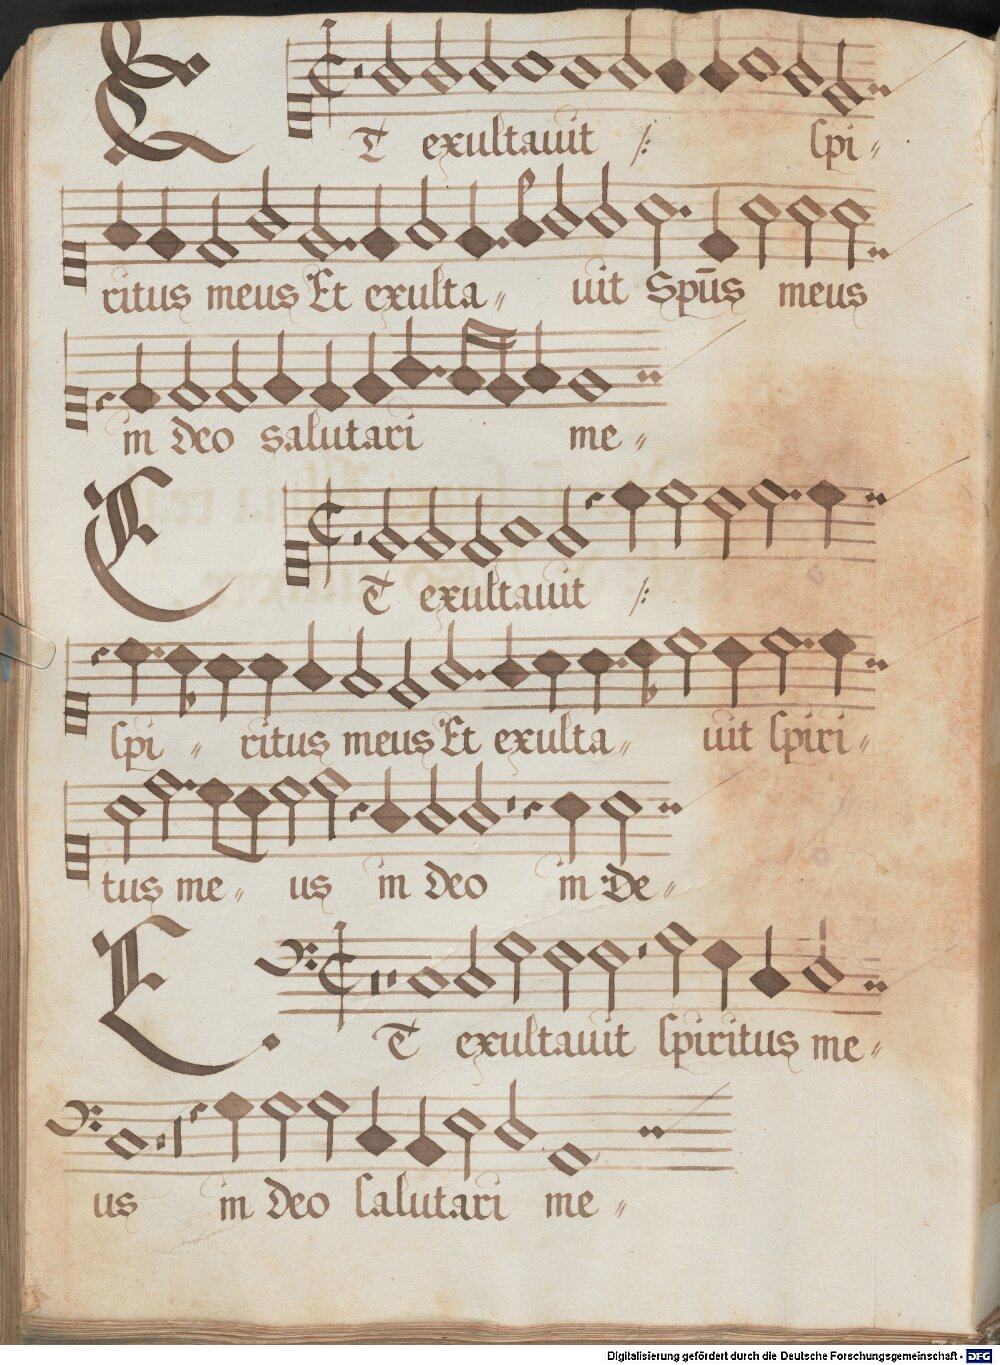 ET exultauit /: spi〃
ritus meus Et exulta〃 uit Spūs meus
in deo salutari me〃
ET exultauit /:
spi〃 ritus meus Et exulta〃 uit spiri〃
tus me〃 us in deo in De〃
ET exultauit spiritus me〃
us in deo salutari me〃
Digitalisierung gefördert durch die Deutsche Forschungsgemeinschaft - DFG